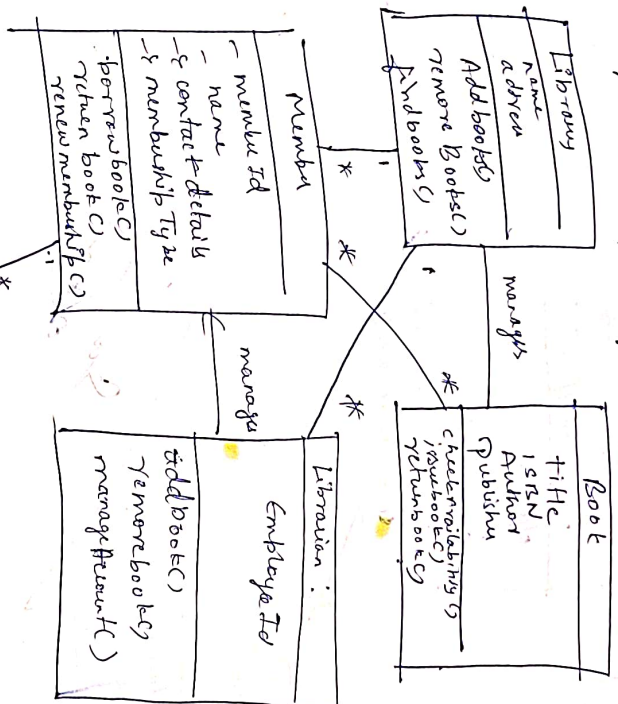 Library
name
address
Addbooks()
remove Books()
findbooks()
1
*
manages
1
*
Book
title
ISBN
Author
Publisher
checkAvailability()
issuebook()
returnbook()
*
*
Member
- member Id
- name
- contact details
- membership Type
borrowbook()
return book()
renewmembership()
1
*
manages
Librarian :
Employee Id
addbook()
removebook()
manageAccount()